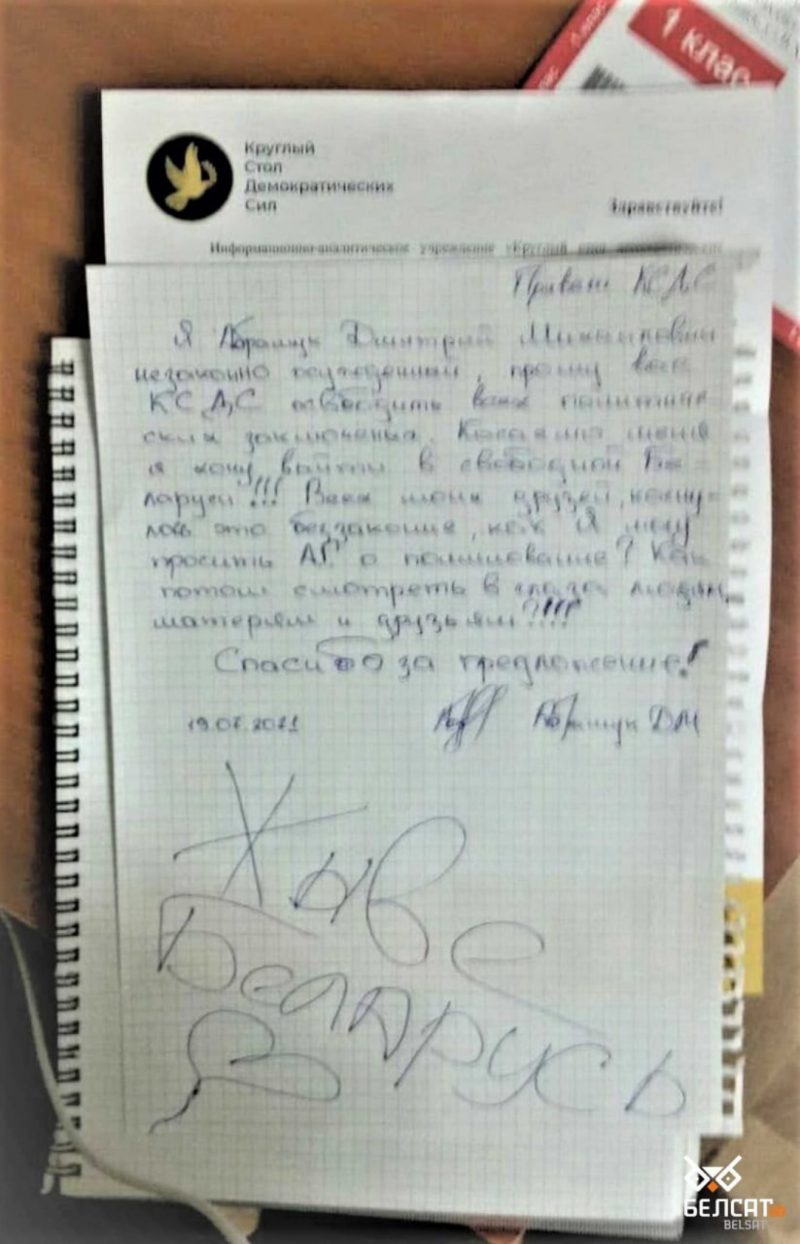 1 клас
Круглый
Стол
Демократических
Сил
Здравствуйте!
Информационно-аналитическое учреждение «Круглый стол
Привет КСДС
Я Абрамук Дмитрий Михайлович
незаконно осужденный, прошу вас
КСДС освободить всех политиче-
ских заключеных. Касаемо меня
я хочу выйти в свободной Бе-
ларуси!!! Всех моих друзей, косну-
лось это беззаконие, как я могу
просить АГ о помилование? Как
потом смотреть в глаза людям,
матерям и друзьям?!!!
Спасибо за предложение!
19.07.2021 Абрамук ДМ
Жыве
Беларусь
БЕЛСАТ
BELSAT